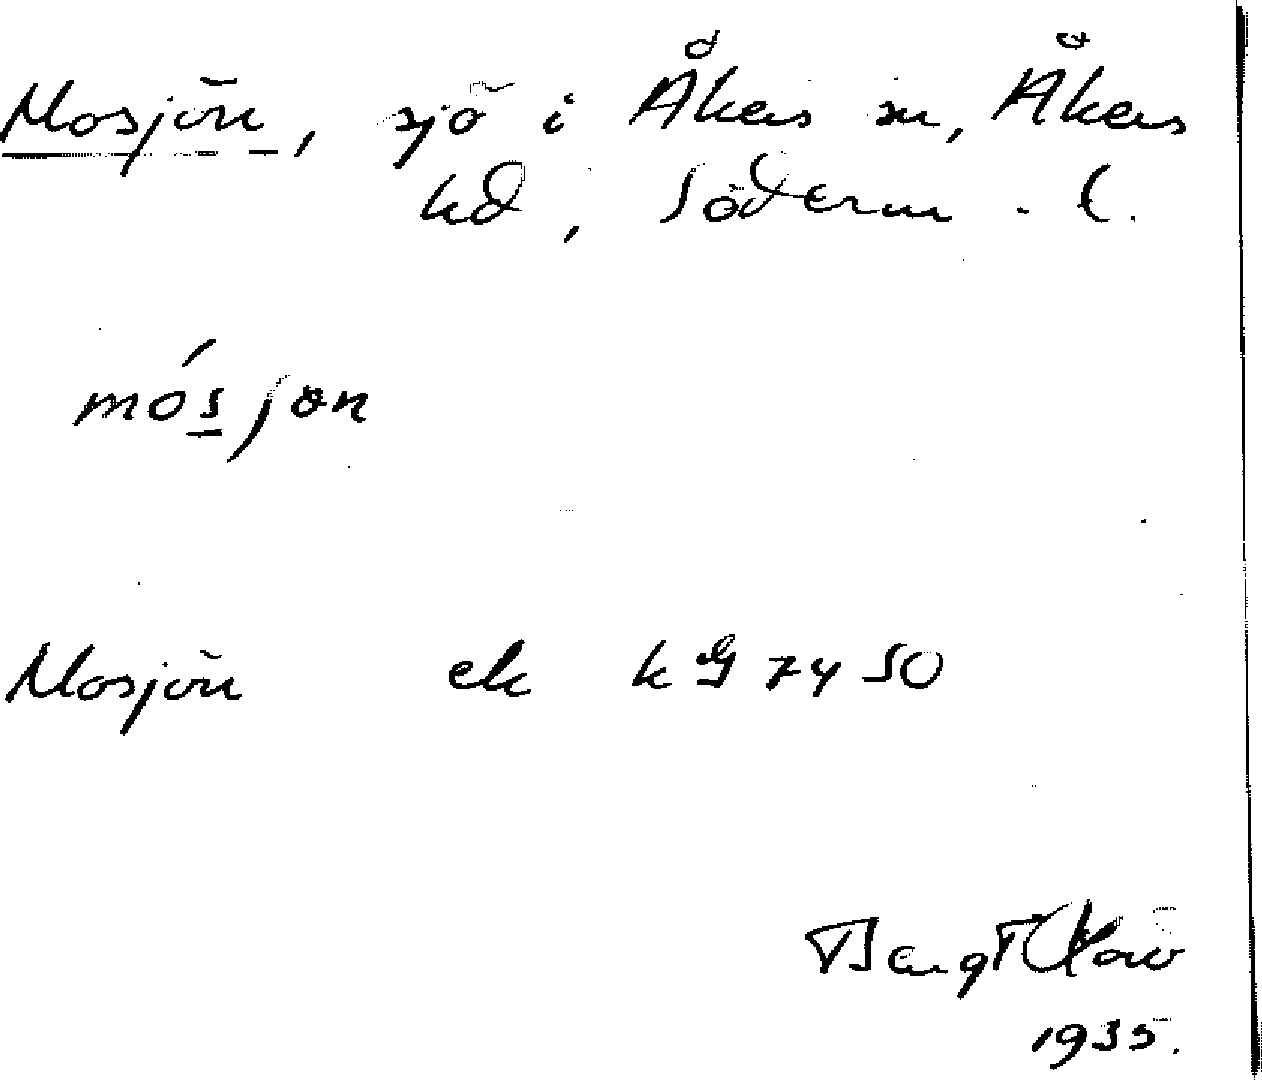 Mosjön, sjö i Åkers sn, Åkers
hd, Söderm. l.
mósjön
Mosjön ek k G 7450
Bengt
1935.